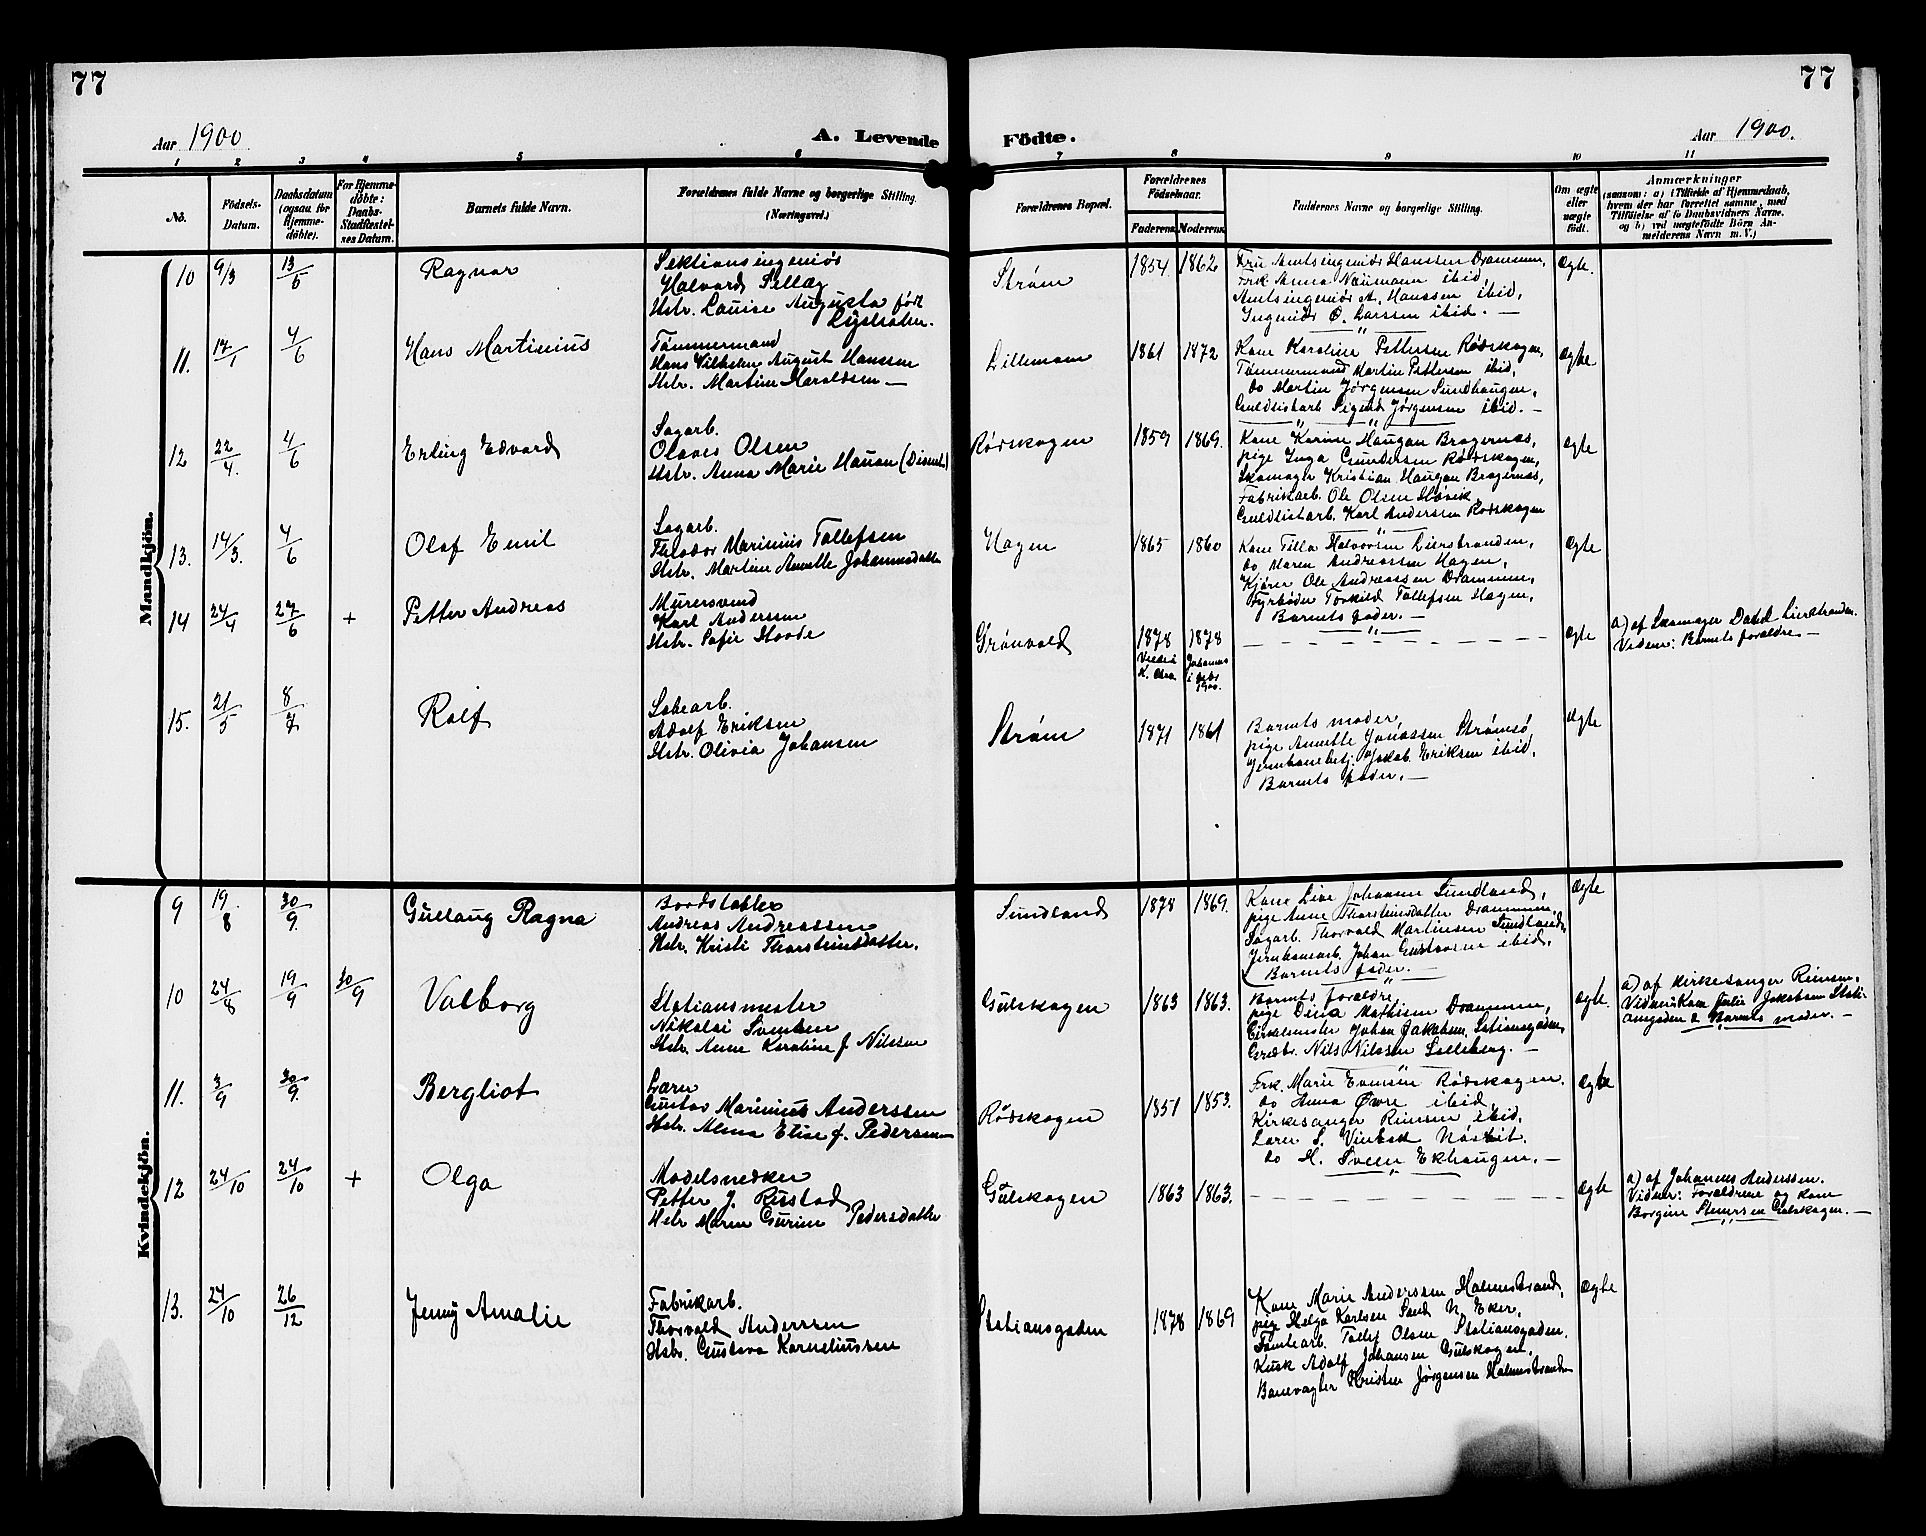 77
77
Aar 1900
A. Levende
Födte.
Aar 1900.
1 2 3 4 5 6 7 8 9 10 11
No.
Födsels-
Datum.
Daabsdatum
(ogsaa for
Hjemme-
döbte).
For Hjemme-
döbte:
Daabs-
Stadfæstel-
ses Datum.
Barnets fulde Navn.
Forældrenes fulde Navne og borgerlige Stilling.
(Næringsvei.)
Forældrenes Bopæl.
Forældrenes
Födselsaar.
Faderens. Moderens.
Faddernes Navne og borgerlige Stilling.
Om ægte
eller
uægte
födt.
Anmærkninger
(saasom: a) i Tilfælde af Hjemmedaab,
hvem der har forrettet samme, med
Tilföielse af to Daabsvidners Navne,
og b) ved uægtefödte Börn An-
melderens Navn m. V.)
Mandkjön.
10 9/3 13/5 Ragnar
Sektionsingeniør
Halvard Sellæg
Hstr. Louise Augusta født
Strøm 1854 1862
Fru Amtsingeniør Hanssen Drammen,
Frk. Anna Naumann ibid,
Amtsingeniør A. Hanssen ibid,
Ingeniør O. Larssen ibid. —
Ægte.
11. 17/1 4/6 Hans Martinius
Tømmermand
Hans Vilhelm August Hanssen
Hstr. Martine Haraldsen —
Lillemoen 1861 1872
Kone Karoline Pettersen Rødskogen,
Tømmermand Martin Pettersen ibid,
do Martin Jørgensen Sundhaugen,
Guldlistarb. Sigurd Jørgensen ibid. —
Ægte
12 22/4. 4/6 Erling Edvard
Sagarb.
Olaves Olsen
Hstr. Anna Marie Hauan (Disnt.)
Rødskogen 1859 1869.
Kone Karine Haugan Bragernæs,
pige Inga Gundersen Rødskogen,
Skomager Kristian Haugan Bragernæs,
Fabrikarb. Ole Olsen Høvik,
Guldlistarb. Karl Anderssen Rødskogen
Ægte
13. 14/3. 4/6 Olaf Emil
Sagarb.
Theodor Marinius Tollefsen
Hstr. Martine Annette Johannesdatter
Hagen 1865 1860
Kone Tilla Halvorsen Lierstranden,
do Maren Andreassen Hagen,
Kjører Ole Andreassen Drammen,
Fyrbøder Torkild Tollefsen Hagen,
Barnets fader. —
Ægte
14 24/4 27/6 + Petter Andreas
Murersvend
Karl Anderssen
Hstr. Sofie Hovde
Grønvold 1878 1878
Ægte
a) af Skomager David Lierstranden.
Vidner: Barnets forældre —
15. 21/5 8/7 Rolf
Adolf Eriksen
Hstr. Olivia Johansen
Strøm 1871 1861
Barnets moder,
pige Annette Jonassen Strømsø
Jernbanebetj. Jakob Eriksen ibid,
Barnets fader. —
Ægte
Kvindekjön.
9 19/8 30/9. Gudlaug Ragna
Bordstabler
Andreas Andreassen
Hstr. Kristi Thorsteinsdatter.
Sundland 1878 1869.
Kone Lise Johansen Sundland,
pige Anne Thorsteinsdatter Drammen,
Sagarb. Thorvald Martinsen Sundland,
Jernbanearb. Johan Gustavsen ibid,
Barnets fader. —
Ægte
10 24/8 19/9 30/9 Valborg
Stationsmester
Nikolai Svendsen
Hstr. Anne Karoline f. Nilssen
Gulskogen 1863 1863.
Barnets forældre,
pige Dina Mathisen Drammen,
Cirkelmester Johan Jakobsen Stationsgaden,
Grdbr. Nils Nilssen Solleberg. —
Ægte.
a) af Kirkesanger Riensen.
Vidner: Kone Julie Jakobsen Stati-
onsgaden & Barnets moder. —
11. 3/9 30/9. Bergliot
Lærer
Gustav Marinius Anderssen
Hstr. Alma Elise f. Pedersen
Rødskogen 1851 1853.
Frk. Marie Evensen Rødskogen.
do Anna Øvre ibid,
Kirkesanger Riensen ibid.
do H. Sveen Ekhaugen. —
Ægte
12 24/10 24/10 + Olga
Modelsnedker
Petter J. Rustad
Hstr Maren Gurine Pedersdatter
Gulskogen 1863 1863.
Ægte
a) af Johannes Anderssen.
Vidner: Forældrene og kone
Borgine Stenersen Gulskogen. —
13. 24/10 26/12 Jenny Amalie
Fabrikarb.
Thorvald Anderssen
Hstr. Gustava Korneliussen
Stationsgaden 1878 1869
Kone Marie Anderssen Holmestrand,
pige Helga Karlsen Sand N. Eker,
Tomtearb. Tollef Olsen Stationsgaden,
Kusk Adolf Johansen Gulskogen,
Banevogter Kristen Jørgensen Holmestrand
Ægte